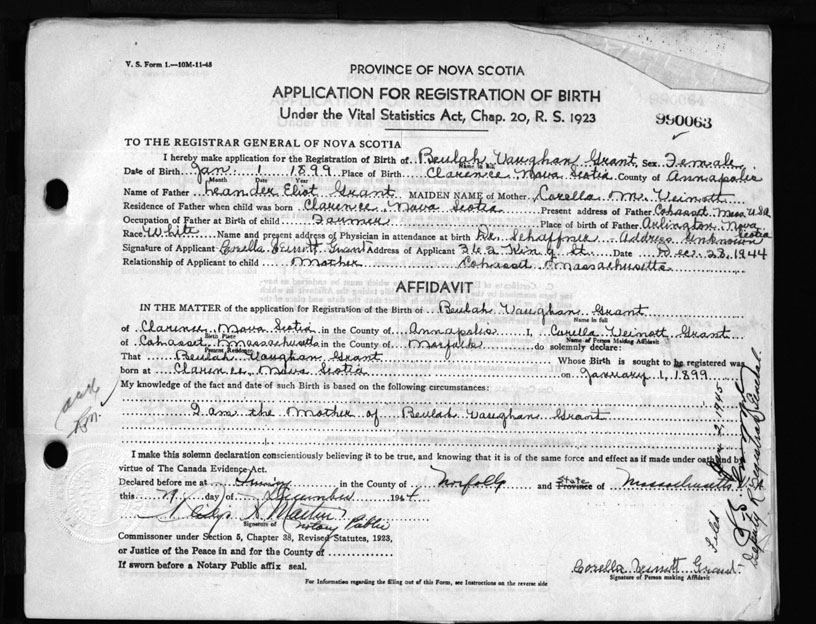 V. S. Form 1.—10M-11-43
PROVINCE OF NOVA SCOTIA
APPLICATION FOR REGISTRATION OF BIRTH
Under the Vital Statistics Act, Chap. 20, R. S. 1923
990063
TO THE REGISTRAR GENERAL OF NOVA SCOTIA
I hereby make application for the Registration of Birth of Beulah Vaughan Grant Sex Female
Name in full
Date of Birth Jan. 1 1899 Place of Birth Clarence Nova Scotia County of Annapolis
Month Date Year
Name of Father Leander Eliot Grant MAIDEN NAME of Mother Corella M. Veinott
Residence of Father when child was born Clarence, Nova Scotia Present address of Father Cohasset Mass, USA
Occupation of Father at Birth of child Farmer Place of birth Arlington Nova Scotia
Race White Name and present address of Physician in attendance at birth Dr. Schaffner Address Unknown
Signature of Applicant Corella Grant Address of Applicant King St. Date Dec 28, 1944
Relationship of Applicant to child Mother Cohasset Massachusetts
AFFIDAVIT
IN THE MATTER of the application for Registration of the Birth of Beulah Vaughan Grant
Name in full
of Clarence Nova Scotia in the County of Annapolis I, Corella Veinott Grant
Birth Place Name of Person Making Affidavit
of Cohasset Massachusetts in the County of Norfolk do solemnly declare:
Present Residence
That Beulah Vaughan Grant Whose Birth is sought to be registered was
born at Clarence, Nova Scotia on January 1, 1899
My knowledge of the fact and date of such Birth is based on the following circumstances:
I am the Mother of Beulah Vaughan Grant
I make this solemn declaration conscientiously believing it to be true, and knowing that it is of the same force and effect as if made under oath and by
virtue of The Canada Evidence Act.
Declared before me at in the County of Norfolk and State Province of Massachusetts
this day of December 1944
Martin
Signature of Notary Public
Commissioner under Section 5, Chapter 38, Revised Statutes, 1923,
or Justice of the Peace in and for the County of
If sworn before a Notary Public affix seal.
Corella Grant
Signature of Person making Affidavit
For Information regarding the filling out of this Form, see Instructions on the reverse side
Filed Jan 2, 1945
Deputy Registrar General